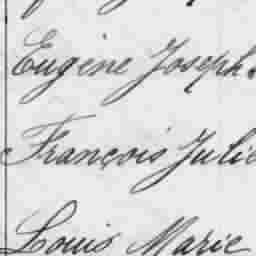 Eugène Joseph
François Julie
Louis Marie